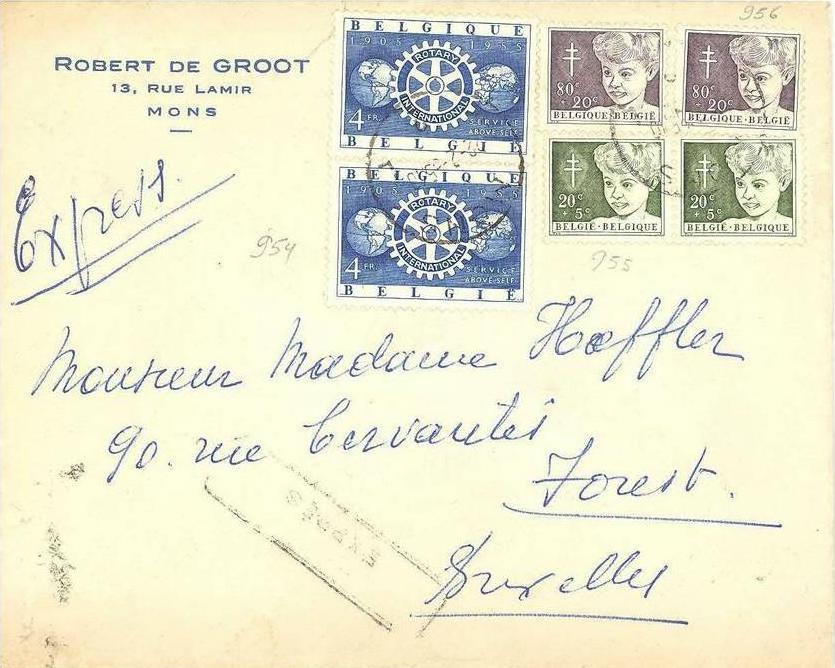 ROBERT DE GROOT
13, RUE LAMIR
MONS
Express.
956
BELGIQUE
1905 1955
ROTARY
INTERNATIONAL
4 FR.
SERVICE
ABOVE SELF
BELGIË
BELGIQUE
1905 1955
ROTARY
INTERNATIONAL
4 FR.
SERVICE
ABOVE SELF
BELGIË
80c
+ 20c
BELGIQUE·BELGIË
80c
+ 20c
BELGIQUE·BELGIË
20c
+ 5c
BELGIË·BELGIQUE
20c
+ 5c
BELGIË·BELGIQUE
954
955
Monsieur Madame Hoeffler
90. rue Cervantès
Forest.
Bruxelles
EXPRÈS